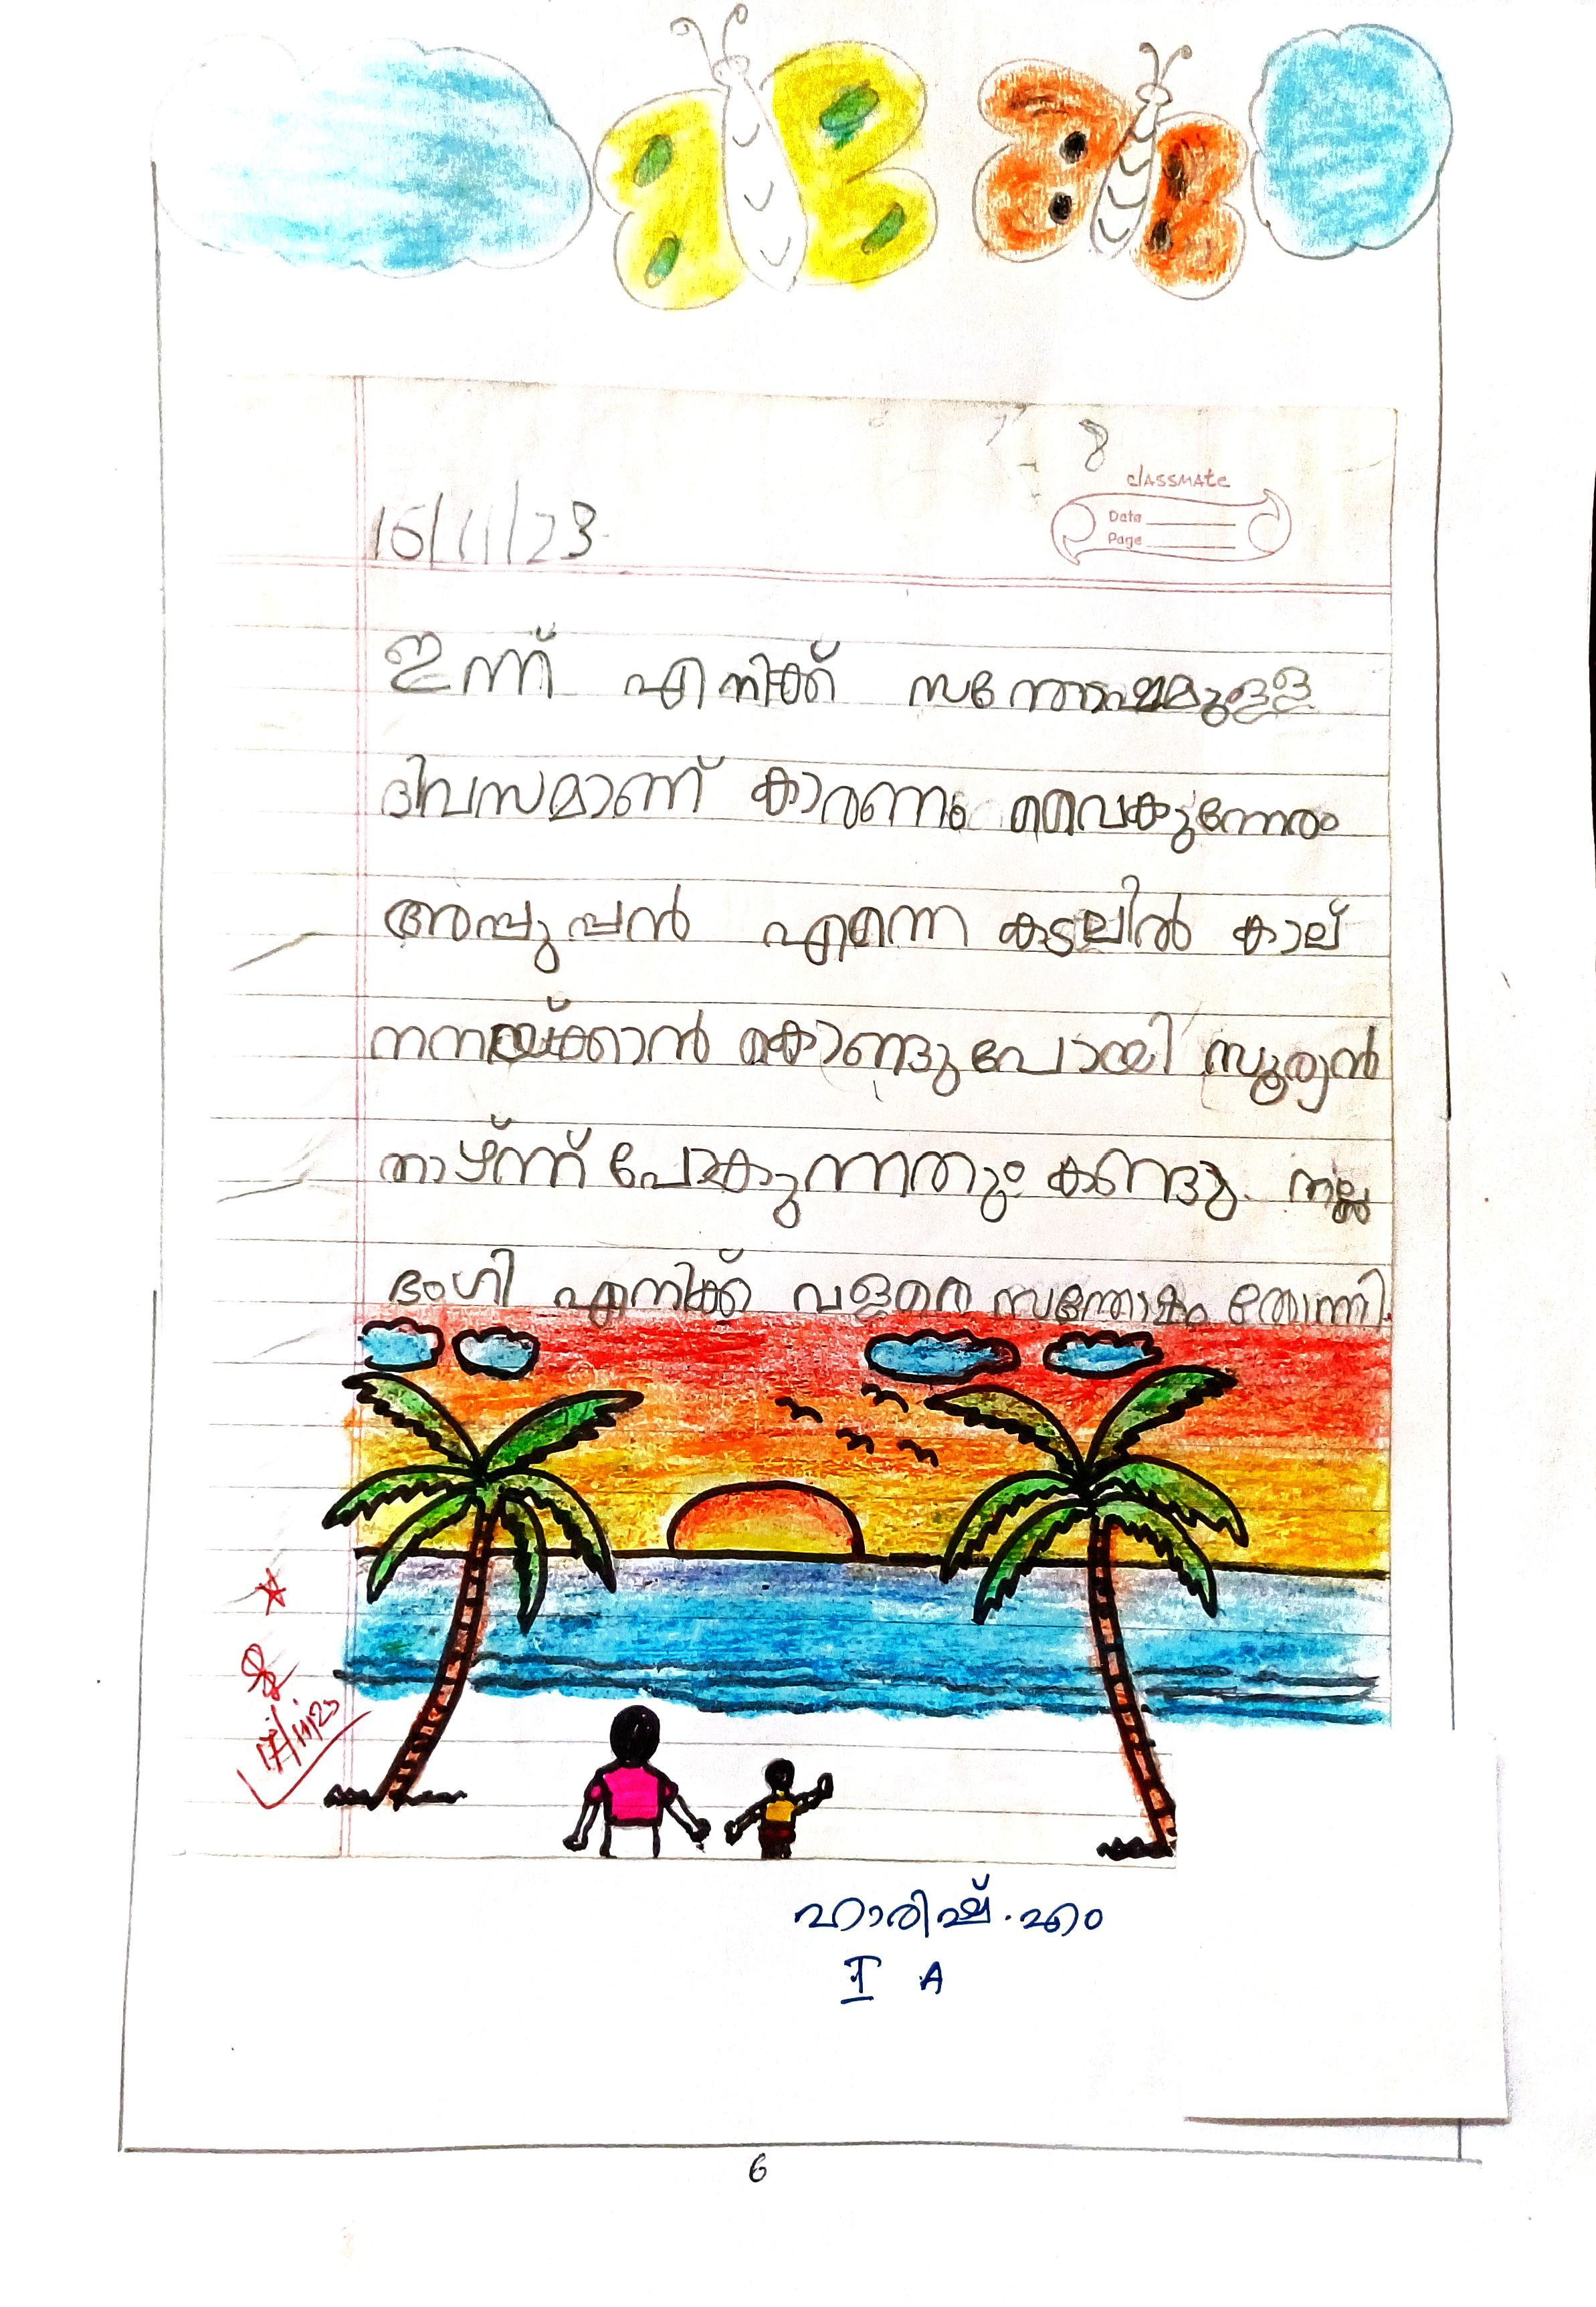 8
classmate
Date
Page
16/11/23
ഇന്ന് എനിക്ക് സന്തോഷമുള്ള
ദിവസമാണ് കാരണം വൈകുന്നേരം
അപ്പുപ്പൻ എന്നെ കടലിൽ കാല്
നനയ്ക്കാൻ കൊണ്ടുപോയി സൂര്യൻ
താഴ്ന്ന് പോകുന്നതും കണ്ടു. നല്ല
ഭംഗി എനിക്ക് വളരെ സന്തോഷം തോന്നി.
17/11/23
ഹാരിഷ്. എം
I A
6